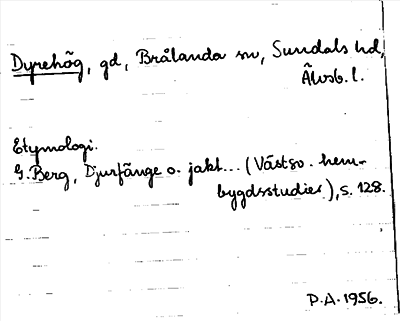 Dyrehög, gd, Brålanda sn, Sundals hd,
Älvsb. l.
Etymologi.
G. Berg, Djurfänge o. jakt... (Västsv. hem-
bygdsstudier), s. 128.
P.A. 1956.